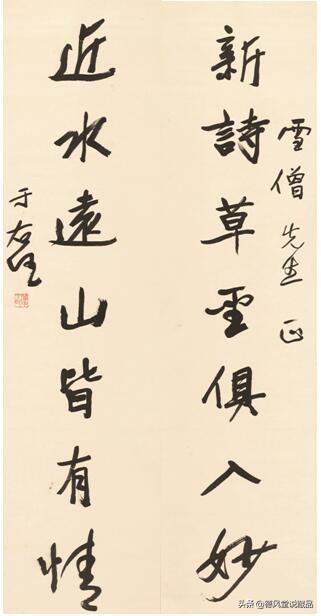 雪僧先生正
新詩草聖俱入妙
近水遠山皆有情
于右任
头条 @德风堂说藏品